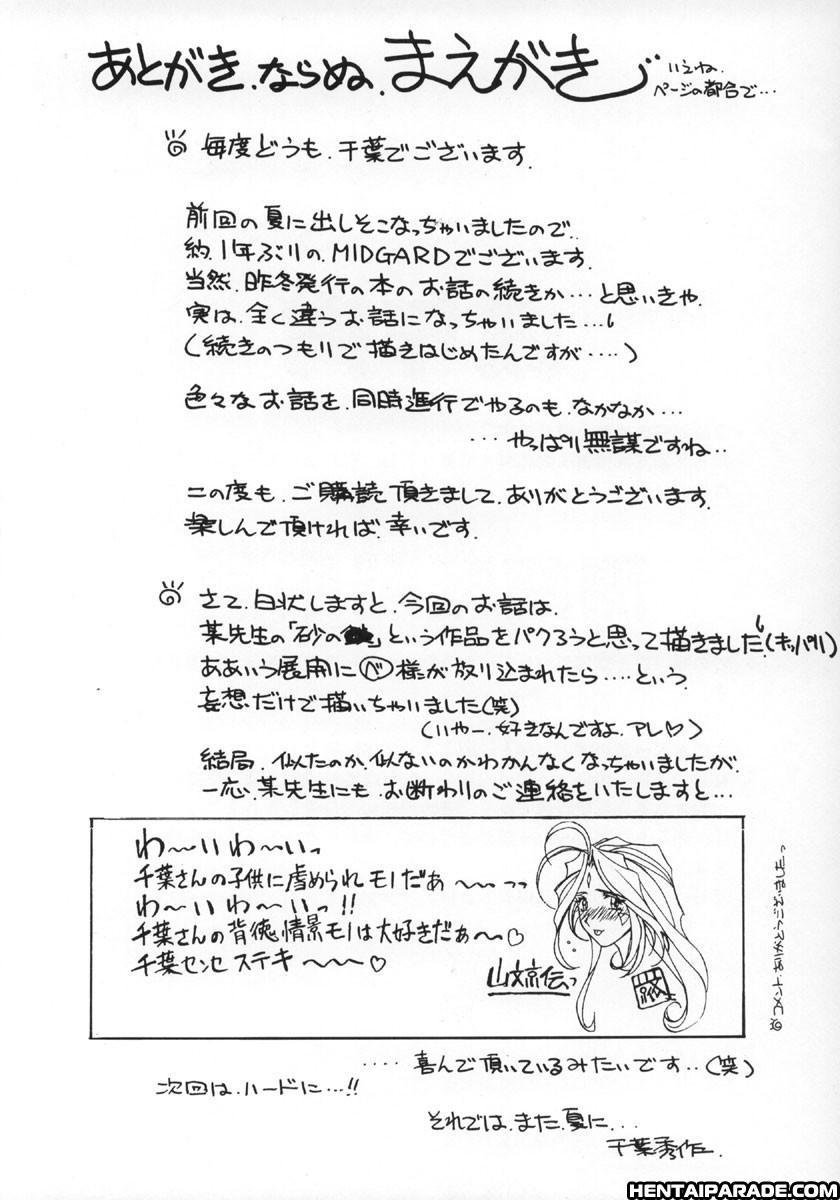 あとがき.ならぬ.まえがき
いえね.
ページの都合で...
毎度どうも.千葉でございます.
前回の夏に出しそこなっちゃいましたので..
約.1年ぶりの.MIDGARDでございます.
当然.昨冬発行の本のお話の続きか...と思いきや.
実は.全く違うお話になっちゃいました...
(続きのつもりで描きはじめたんですが....)
色々なお話を.同時進行でやるのも.なかなか...
...やっぱり無謀ですね..
この度も.ご購読頂きまして.ありがとうございます.
楽しんで頂ければ.幸いです.
さて.白状しますと.今回のお話は.
某先生の「砂の」という作品をパクろうと思って描きました.(キッパリ)
ああいう展開に(べ)様が放り込まれたら....という.
妄想だけで描いちゃいました(笑)
(いやー.好きなんですよ.アレ♡)
結局.似たのか.似ないのかわかんなくなっちゃいましたが.
一応.某先生にも.お断わりのご連絡をいたしますと...
わ〜いわ〜いっ
千葉さんの子供に虐められモノだぁ〜〜っっ
わ〜いわ〜いっ!!
千葉さんの背徳情景モノは大好きだぁ〜♡
千葉センセステキ〜〜〜♡
山文京伝っ
◎コメントありがとうございましたっ
....喜んで頂いているみたいです..(笑)
次回は.ハードに...!!
それでは.また.夏に...
千葉秀作.
HENTAIPARADE.COM